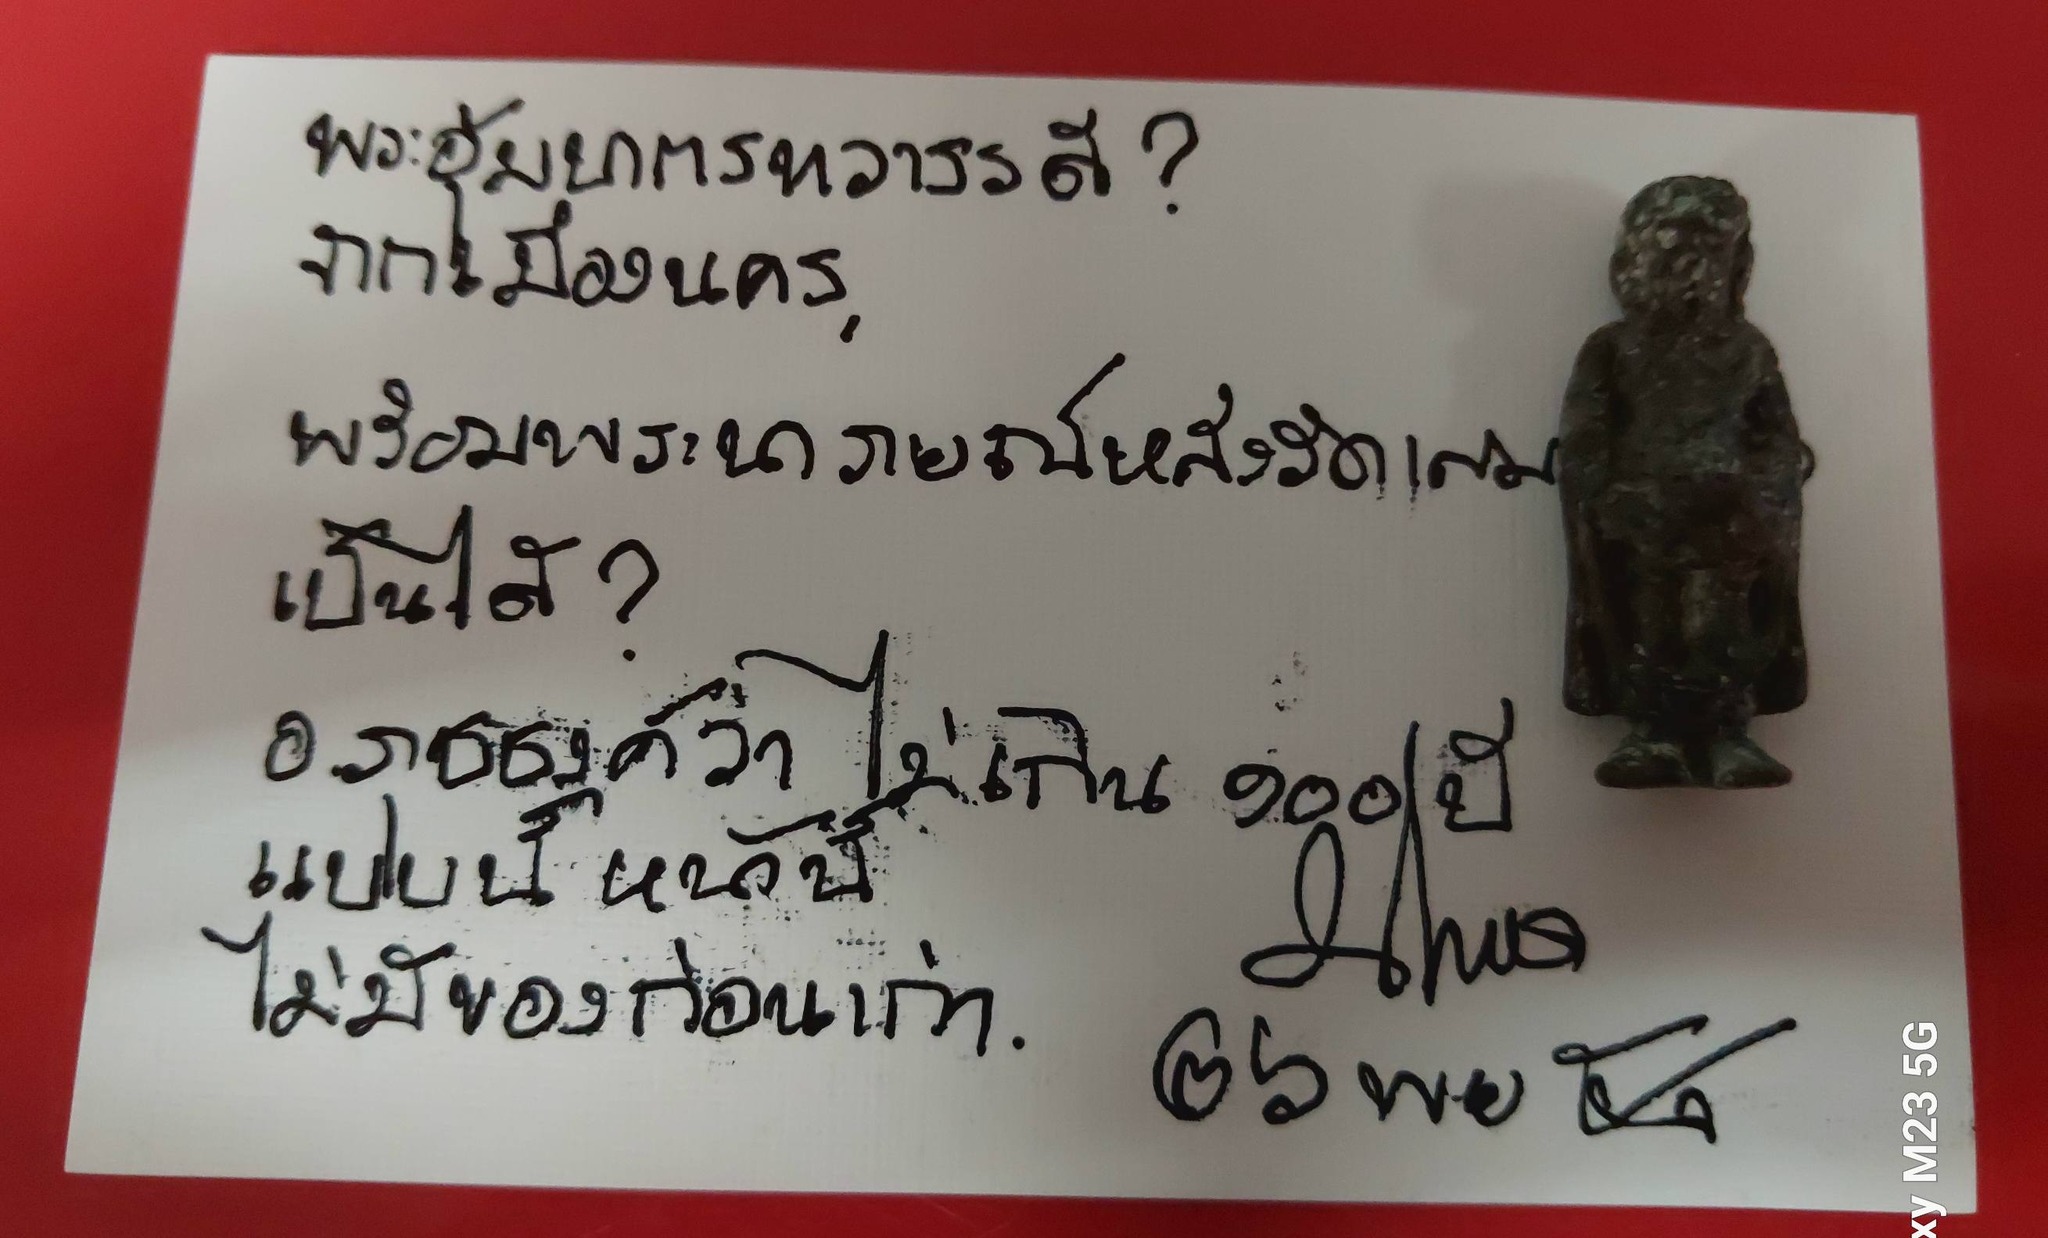 พระอุ้มบาตรทวารวดี?
จากเมืองนครฯ
พร้อมพระนารายณ์หลังวัด
เป็นได้?
ว่า ไม่เกิน ๑๐๐ ปี
แบบนี้
ไม่มีของก่อนเก่า.
๒๖ พย
xy M23 5G